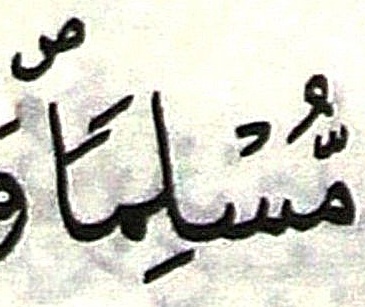 مُّسْلِمًاۖ وَ